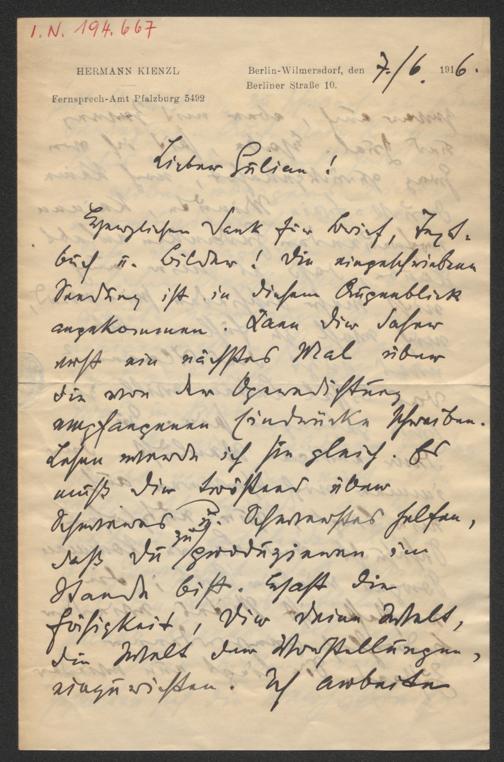 I.N. 194.667
HERMANN KIENZL
Fernsprech-Amt Pfalzburg 5492
Berlin-Wilmersdorf, den 7./6. 1916.
Berliner Straße 10.
Lieber Julian!
Herzlichen Dank für Brief, Text-
buch u. Bilder! Die eingeschriebene
Sendung ist in diesem Augenblick
angekommen. Kann Dir daher
erst ein nächstes Mal über
die von der Operndichtung
empfangenen Eindrücke schreiben.
Lesen werde ich sie gleich. Es
muß Dir tröstend über
Schweres u. Schwerstes helfen,
daß Du zu produzieren im
Stande bist. Hast die
Fähigkeit, Dir Deine Welt,
die Welt der Vorstellungen,
einzurichten. Ich arbeite